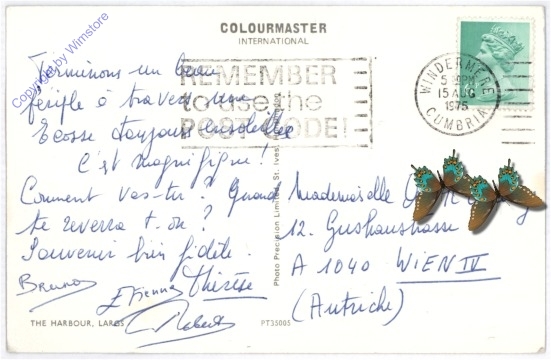 Copyright by Wimstore
COLOURMASTER
INTERNATIONAL
REMEMBER
to use the
POST CODE!
WINDERMERE
5 PM
15 AUG
1975
CUMBRIA
Terminons un beau
périple à travers une
Ecosse toujours ensoleillée
C'est magnifique!
Comment vas-tu? Quand
te reverra t-on?
Souvenir bien fidèle.
Bruno
Etienne Thérèse
Robert
Mademoiselle
12.
A 1040 WIEN IV
(Autriche)
Photo Precision Limited, St. Ives,
THE HARBOUR, LARGS
PT35005